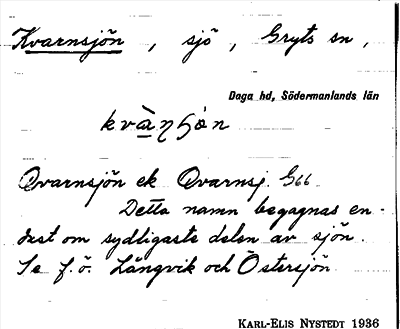 Kvarnsjön, sjö, Gryts sn,
Daga hd, Södermanlands län
kvà̱ɳʃòn
Qvarnsjön ek Qvarnsj. G66
Detta namn begagnas en-
dast om sydligaste delen av sjön.
Se f.ö. Långvik och Östersjön
KARL-ELIS NYSTEDT 1936